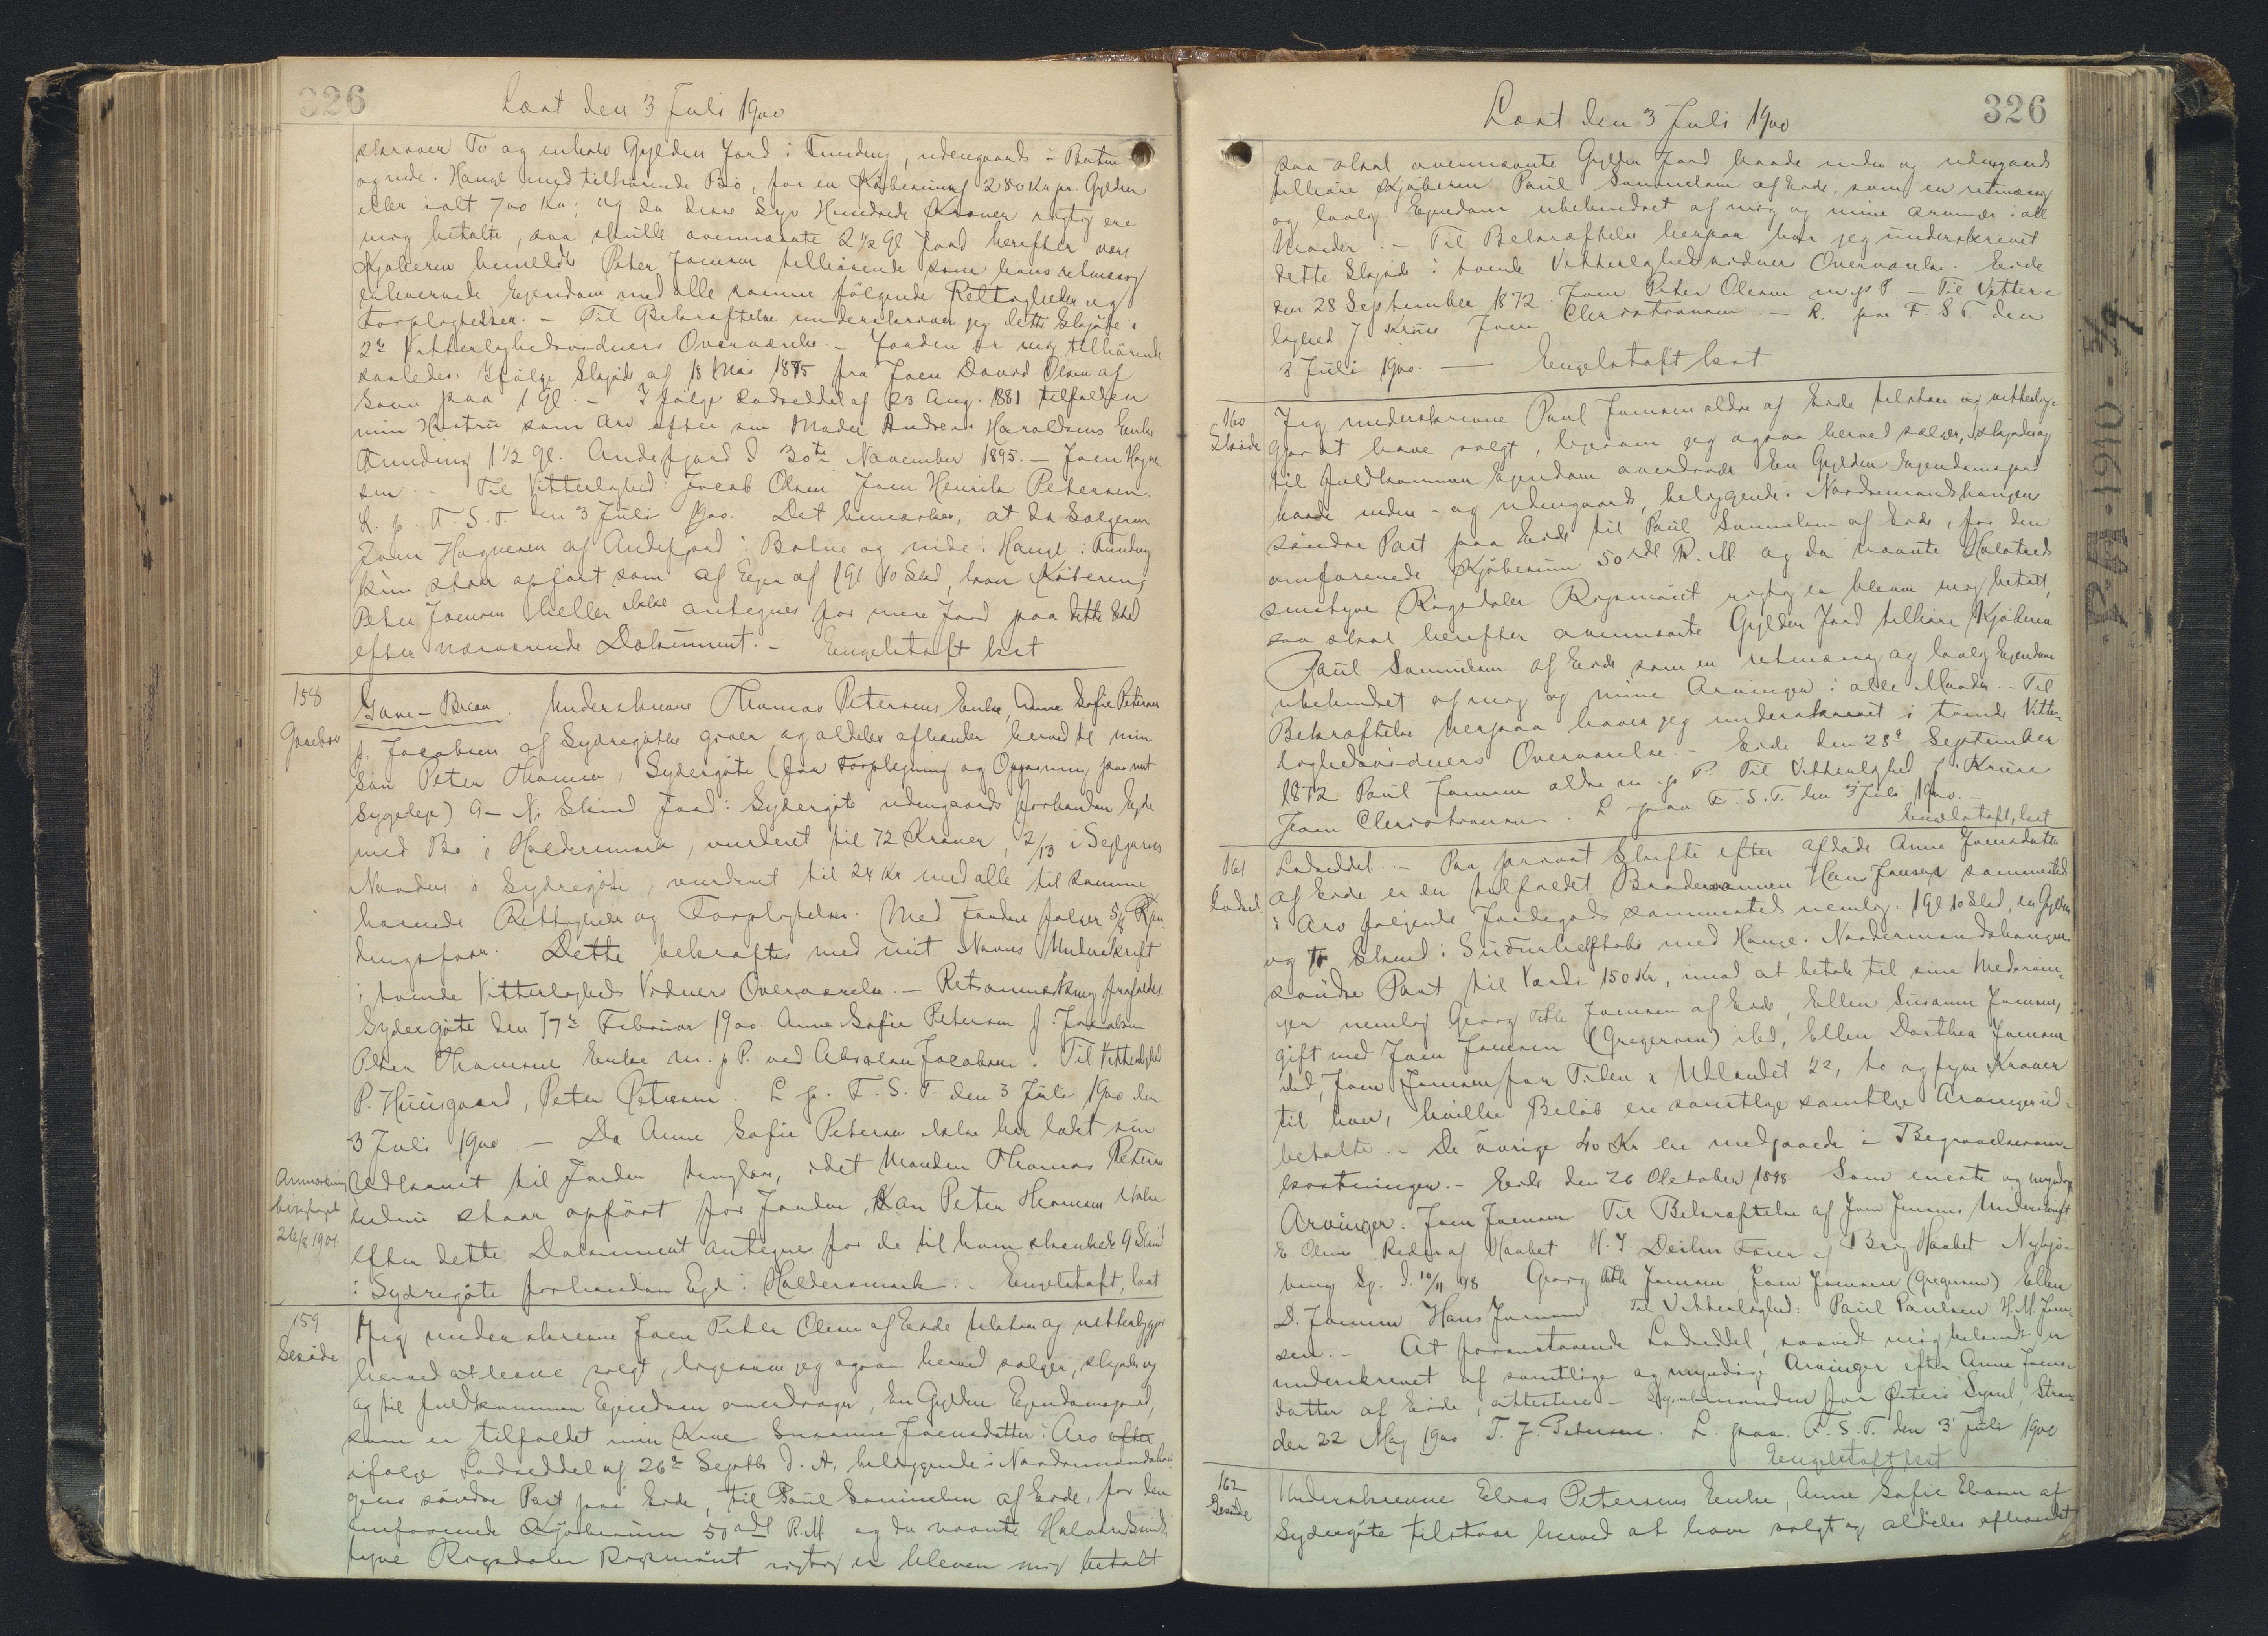 326
Læst den 3 Juli 1900
skraaer To og enhalv Gylden Jord i Funding, udengaards i Botne
og inde i Hauge med tilhörende Bö, for en Köbesum af 280 Kr pr. Gylden
eller ialt 700 Kr; og da disse Syv Hundrede Kroner rigtig ere
mig betalte, saa skulle ovennævnte 2 1/2 Gl Jord herefter være
Kjøberen bemeldte Peter Joensen tilhørende som hans retmæssig
erhvervede Ejendom med alle samme følgende Rettigheder og
Forpligtelser. - Til Bekræftelse underskriver jeg dette Skjøde i
2de Vitterlighedsvidners Overværelse. - Jorden er mig tilhörende
saaledes: Ifölge Skjøde af 18 Mai 1875 fra Joen David Olsen af
paa 1 Gl. - I fölge Lodseddel af 23 Aug. 1881 tilfalden
min Hustru som Arv efter sin Moder Andreas Haraldsens Enke
Funding 1 1/2 Gl. Andefjord d 30te November 1895. - Joen Hogne
sen. - Til Vitterlighed: Jacob Olsen Joen Henrik Petersen.
L. p. F. S. T. den 3 Juli 1900. Det bemærkes, at da Sælgeren
Joen Hognesen af Andefjord i Botne og inde i Hauge i Funding
kun staar opført som af Ejer af 1 Gl 10 Skd, kan Köberen
Peter Joensen heller ikke antegnes for mere Jord paa dette Sted
efter nærværende Dokument. - Engelstoft kst
158
Gavebrev
Gave-Brev. Underskrevne Thomas Petersens Enke, Anne Sofie Petersen
f. Jacobsen af Sydregøte giver og aldeles afhænder herved til min
Sön Peter Thomsen, Sydergøte (for Forplejning og Opvartning paa mit
Sygeleje) 9 - Ni Skind Jord i Sydergøte udengaards forhendan Egde
med Bö i Haldersmark, vurderet til 72 Kroner, 2/13 i Sejlgarns
Naustur i Sydregøte, vurderet til 24 Kr med alle til samme
hørende Rettigheder og Forpligtelser. Med Jorden følger 5/8
dingsfaar. Dette bekræftes med mit Navns Underskrift
i tvende Vitterligheds Vidners Overværelse. - Retsanmærkning frafaldes.
Sydergøte den 17de Februar 1900. Anne Sofie Petersen f. Jacobsen
Peter Thomsens Enke m. p P. ved Absalon Jacobsen. Til Vitterlighed
P. Huusgaard, Peter Petersen. L p. F. S. T. den 3 Juli 1900 den
3 Juli 1900 - Da Anne Sofie Petersen ikke har ladet sin
Adkomst til Jorden tinglæse, idet Manden Thomas Petersen
endnu staar opført for Jorden, kan Peter Thomsen ikke
efter dette Document antegnes for de til ham skænkede 9 Skind
i Sydregøte forhendan Egd i Haldersmark. - Engelstoft, kst
Anmærkning
bortfaldet
26/8 1901.
159
Skøde
Jeg underskrevne Joen Peter Olesen af Eide tilstaar og vitterliggjør
herved at have solgt, ligesom jeg ogsaa herved sælger, skjøder og
og til fuldkommen Ejendom overdrager, En Gylden Ejendomsjord,
som er tilfaldet min Kone Susanne Joensdatter i Arv efter
ifølge Lodseddel af 26de Septbr d. A. beliggende i Nordmandshau-
gens søndre Part paa Eide, til Poul Samuelsen af Eide, for den
omforenede Kjøbesum 50 rdl R.M og da nævnte Halvtredsinds-
tyve Rigsdaler Rigsmønt rigtig er bleven mig betalt
326
Læst den 3 Juli 1900
saa skal ovennævnte Gylden Jord baade inden og udengaards
tilhøre Kjøberen Poul Samuelsen af Eide, som en retmæssig
og lovlig Ejendom ubehindret af mig og mine Arvinger i alle
Maader. - Til Bekræftelse herpaa har jeg underskrevet
dette Skjøde i tvende Vitterlighedsvidners Overværelse. Eide
den 28 September 1872. Joen Peter Olesen m.p.P. - Til Vitter-
lighed J Kruse Joen Clementsen. - L. paa F. S T. den
3 Juli 1900. - Engelstoft kst
160
Skøde
Jeg underskrevne Poul Joensen ældre af Eide tilstaar og vitterlig-
gjør at have solgt, ligesom jeg ogsaa herved sælger, skjøder og
til fuldkommen Ejendom overdrager En Gylden Ejendomsjord
baade inden- og udengaards, beliggende i Nordmandshaugens
söndre Part paa Eide til Poul Samuelsen af Eide, for den
omforenede Kjøbesum 50 rdl R. M og da nævnte Halvtred-
sinstyve Rigsdaler Rigsmönt rigtig er bleven mig betalt,
saa skal herefter ovennævnte Gylden Jord tilhøre Kjøberen
Poul Samuelsen af Eide som en retmæssig og lovlig Ejendom
ubehindret af mig og mine Arvinger i alle Maader. - Til
Bekræftelse herpaa haver jeg underskrevet i tvende Vitter-
lighedsvidners Overværelse. - Eide den 28de September
1872 Poul Joensen ældre m. p P. Til Vitterlighed J. Kruse
Joen Clementsen. L paa F. S. T. den 3 Juli 1900. -
Engelstoft, kst
161
Lodsed.
Lodseddel. - Paa privat Skifte efter afdøde Anne Joensdatter
af Eide er der tilfaldet Brodersønnen Hans Joensen sammesteds
i Arv følgende Jordegods sammesteds nemlig: 1 Gl 10 Skd, en Gylden
og Ti Skind i med Hauge i Nordmandshaugens
søndre Part til Værdi 150 Kr, imod at betale til sine Medarvin-
ger nemlig Georg Joensen af Eide, Ellen Susanne Joensen,
gift med Joen Joensen (Gregersen) ibd, Ellen Dorthea Joensen
ibd, Joen Joensen for Tiden i Udlandet 22, to og tyve Kroner
til hver, hvilke Beløb ere samtlige samtlige Arvinger ud-
betalte. - De övrige 40 Kr ere medgaaede i Begravelsesom-
kostninger. - Eide den 26 Oktober 1898. Som eneste og myndige
Arvinger: Joen Joensen Til Bekræftelse af Joen Joensens Underskrift
E. Olsen Reder af Haabet H. J. Fører af Brig Haabet Nykjø-
bing Sj. d. 10/11 98 Georg Joensen Joen Joensen (Gregersen) Ellen
D. Joensen Hans Joensen Til Vitterlighed: Poul Poulsen H. M. Joen-
sen. - At foranstaaende Lodseddel, saavidt mig bekendt er
underskrevet af samtlige og myndige Arvinger efter Anne Joens-
datter af Eide, attesteres - Sysselmanden for Østerø Syssel, Stran-
der 22 Maj 1900 T. J. Petersen. L. paa. F. S. T. den 3 Juli 1900
Engelstoft kst
162
Skøde
Underskrevne Elias Petersens Enke, Anne Sofie af
Sydergøte tilstaar herved at have solgt og aldeles afhændet